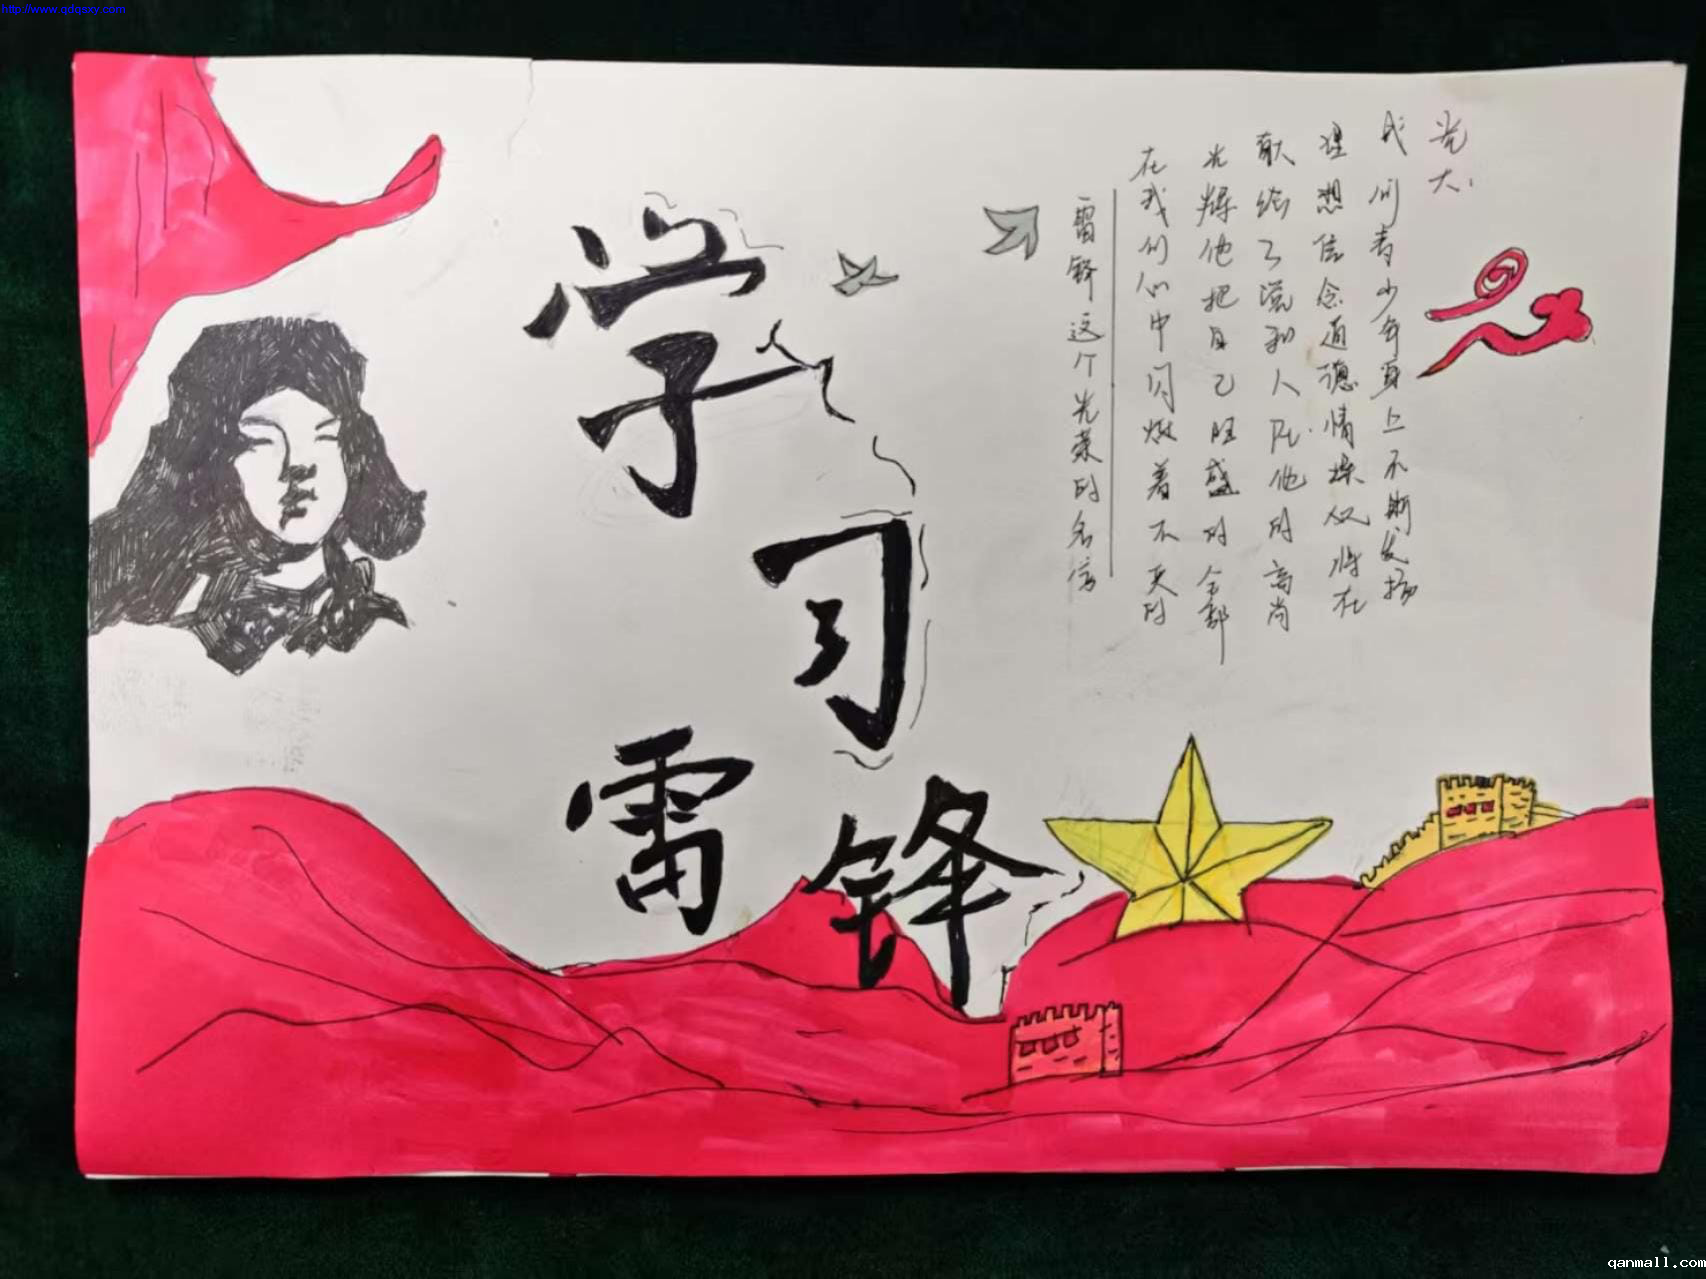 http://www.qdqoxy.com
学习
雷锋
雷锋这个光荣的名字
在我们心中闪烁着不灭的
光辉他把自己旺盛的全部
献给了党和人民他的高尚
理想信念道德情操必将在
我们青少年身上不断发扬
光大.
qanmall.com